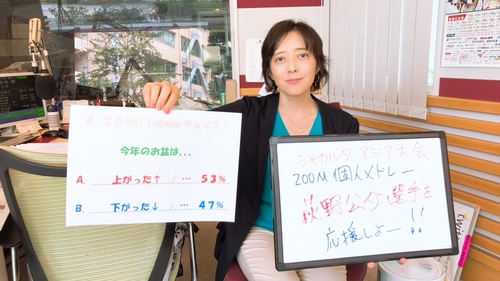 8/20(月) ToDaysチョイス！
今年のお盆は、、、
A. 上がった↑ / … 53%
B. 下がった↓ / … 47%
ジャカルタ アジア大会
200M 個人メドレー
萩野公介選手を
応援しよー!!